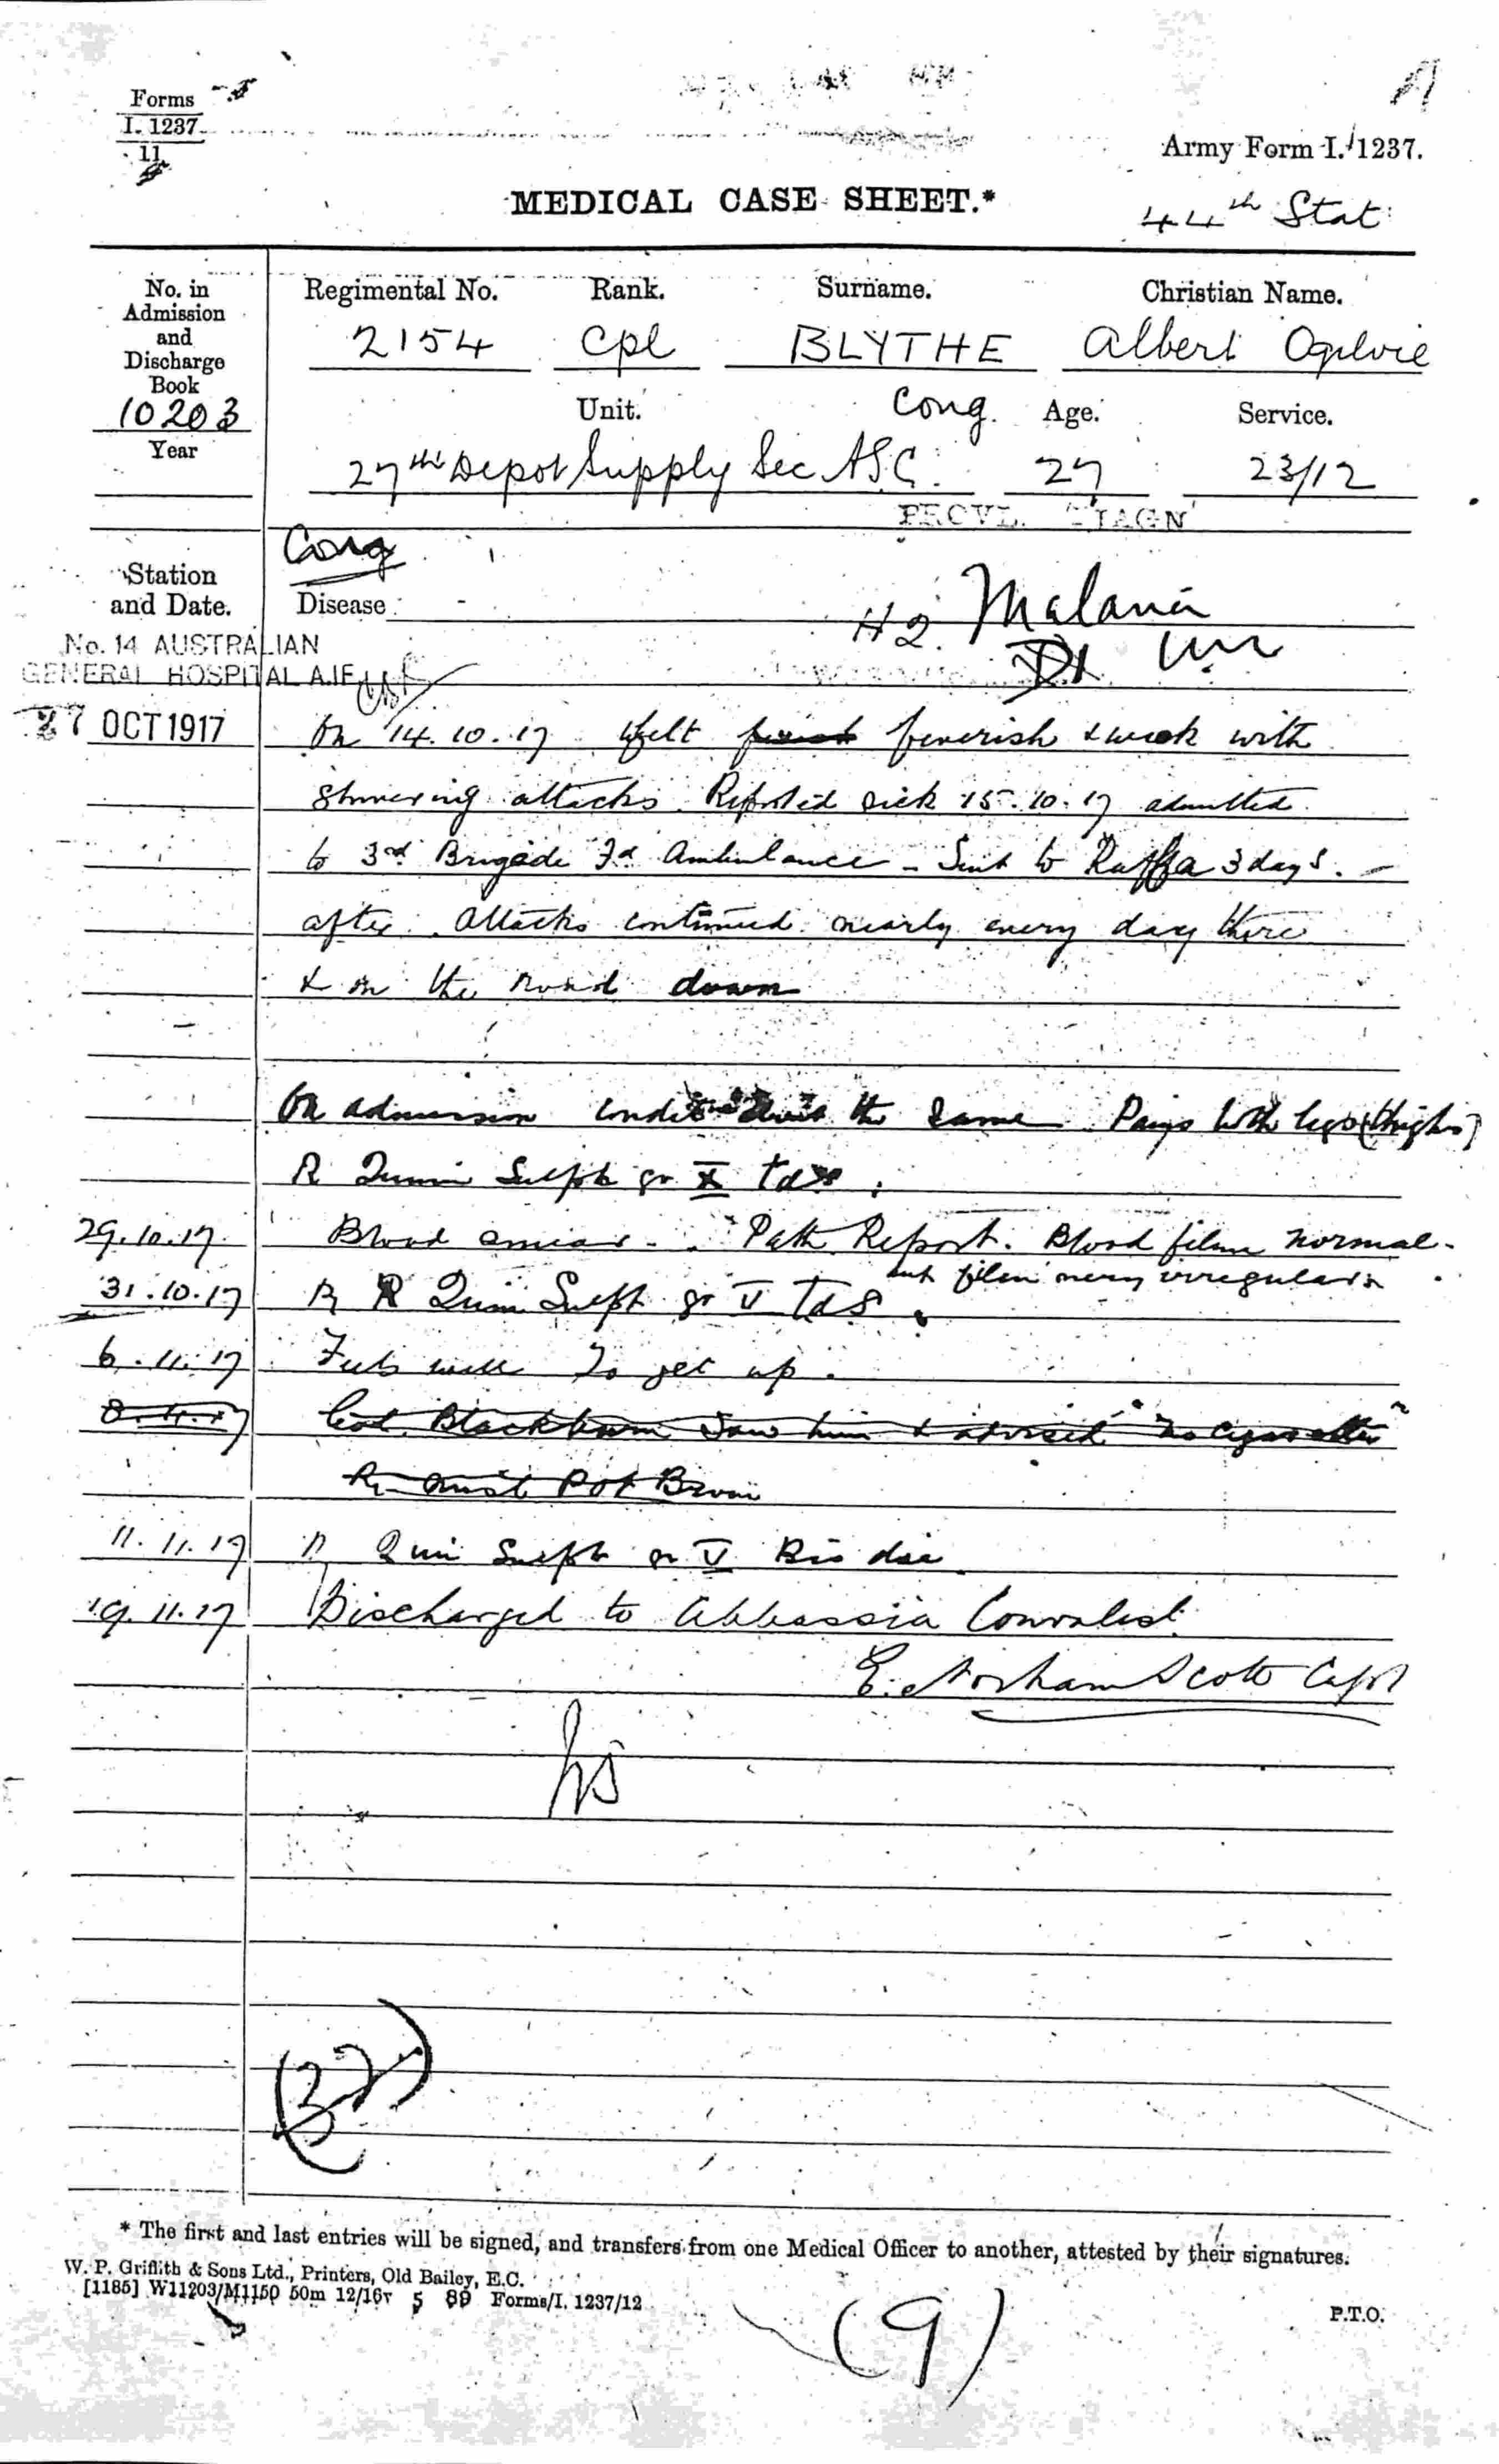 Forms
I. 1237
11
Army Form I. 1237.
MEDICAL CASE SHEET.*
44th Stat
No. in Admission and Discharge Book
10203
Year
Regimental No. Rank. Surname. Christian Name.
2154 Cpl BLYTHE Albert Ogilvie
Unit. Cong. Age. Service.
27th Depot Supply Sec ASC. 27 23/12
PROVL. DIAGN
Cong
Station and Date.
Disease
H2. Malaria
No. 14 AUSTRALIAN
GENERAL HOSPITAL A.I.F.
27 OCT 1917
On 14.10.17 felt feverish & weak with
shivering attacks. Reported sick 15.10.17 admitted
to 3rd Brigade Fd Ambulance - Sent to Raffa 3 days. -
after. Attacks continued nearly every day there
& on the road down
On admission condition the same Pains both legs (thighs)
R Quinin Sulph gr X tds.
29.10.17. Blood smear. Path Report. Blood film normal.
but film very irregular
31.10.17 R Quin Sulph gr V Tds.
6.11.17 Feels well To get up.
8.11.17 Col. Blackburn saw him & advised "no cigarettes"
R Mist Pot Brom
11.11.17 R Quin Sulph gr V Bis die
19.11.17 Discharged to Abbassia Convalest.
E. Norham Scott Capt
(37)
* The first and last entries will be signed, and transfers from one Medical Officer to another, attested by their signatures.
W. P. Griffith & Sons Ltd., Printers, Old Bailey, E.C.
[1185] W11203/M1150 50m 12/16v 5 89 Forms/I. 1237/12
P.T.O.
(9)